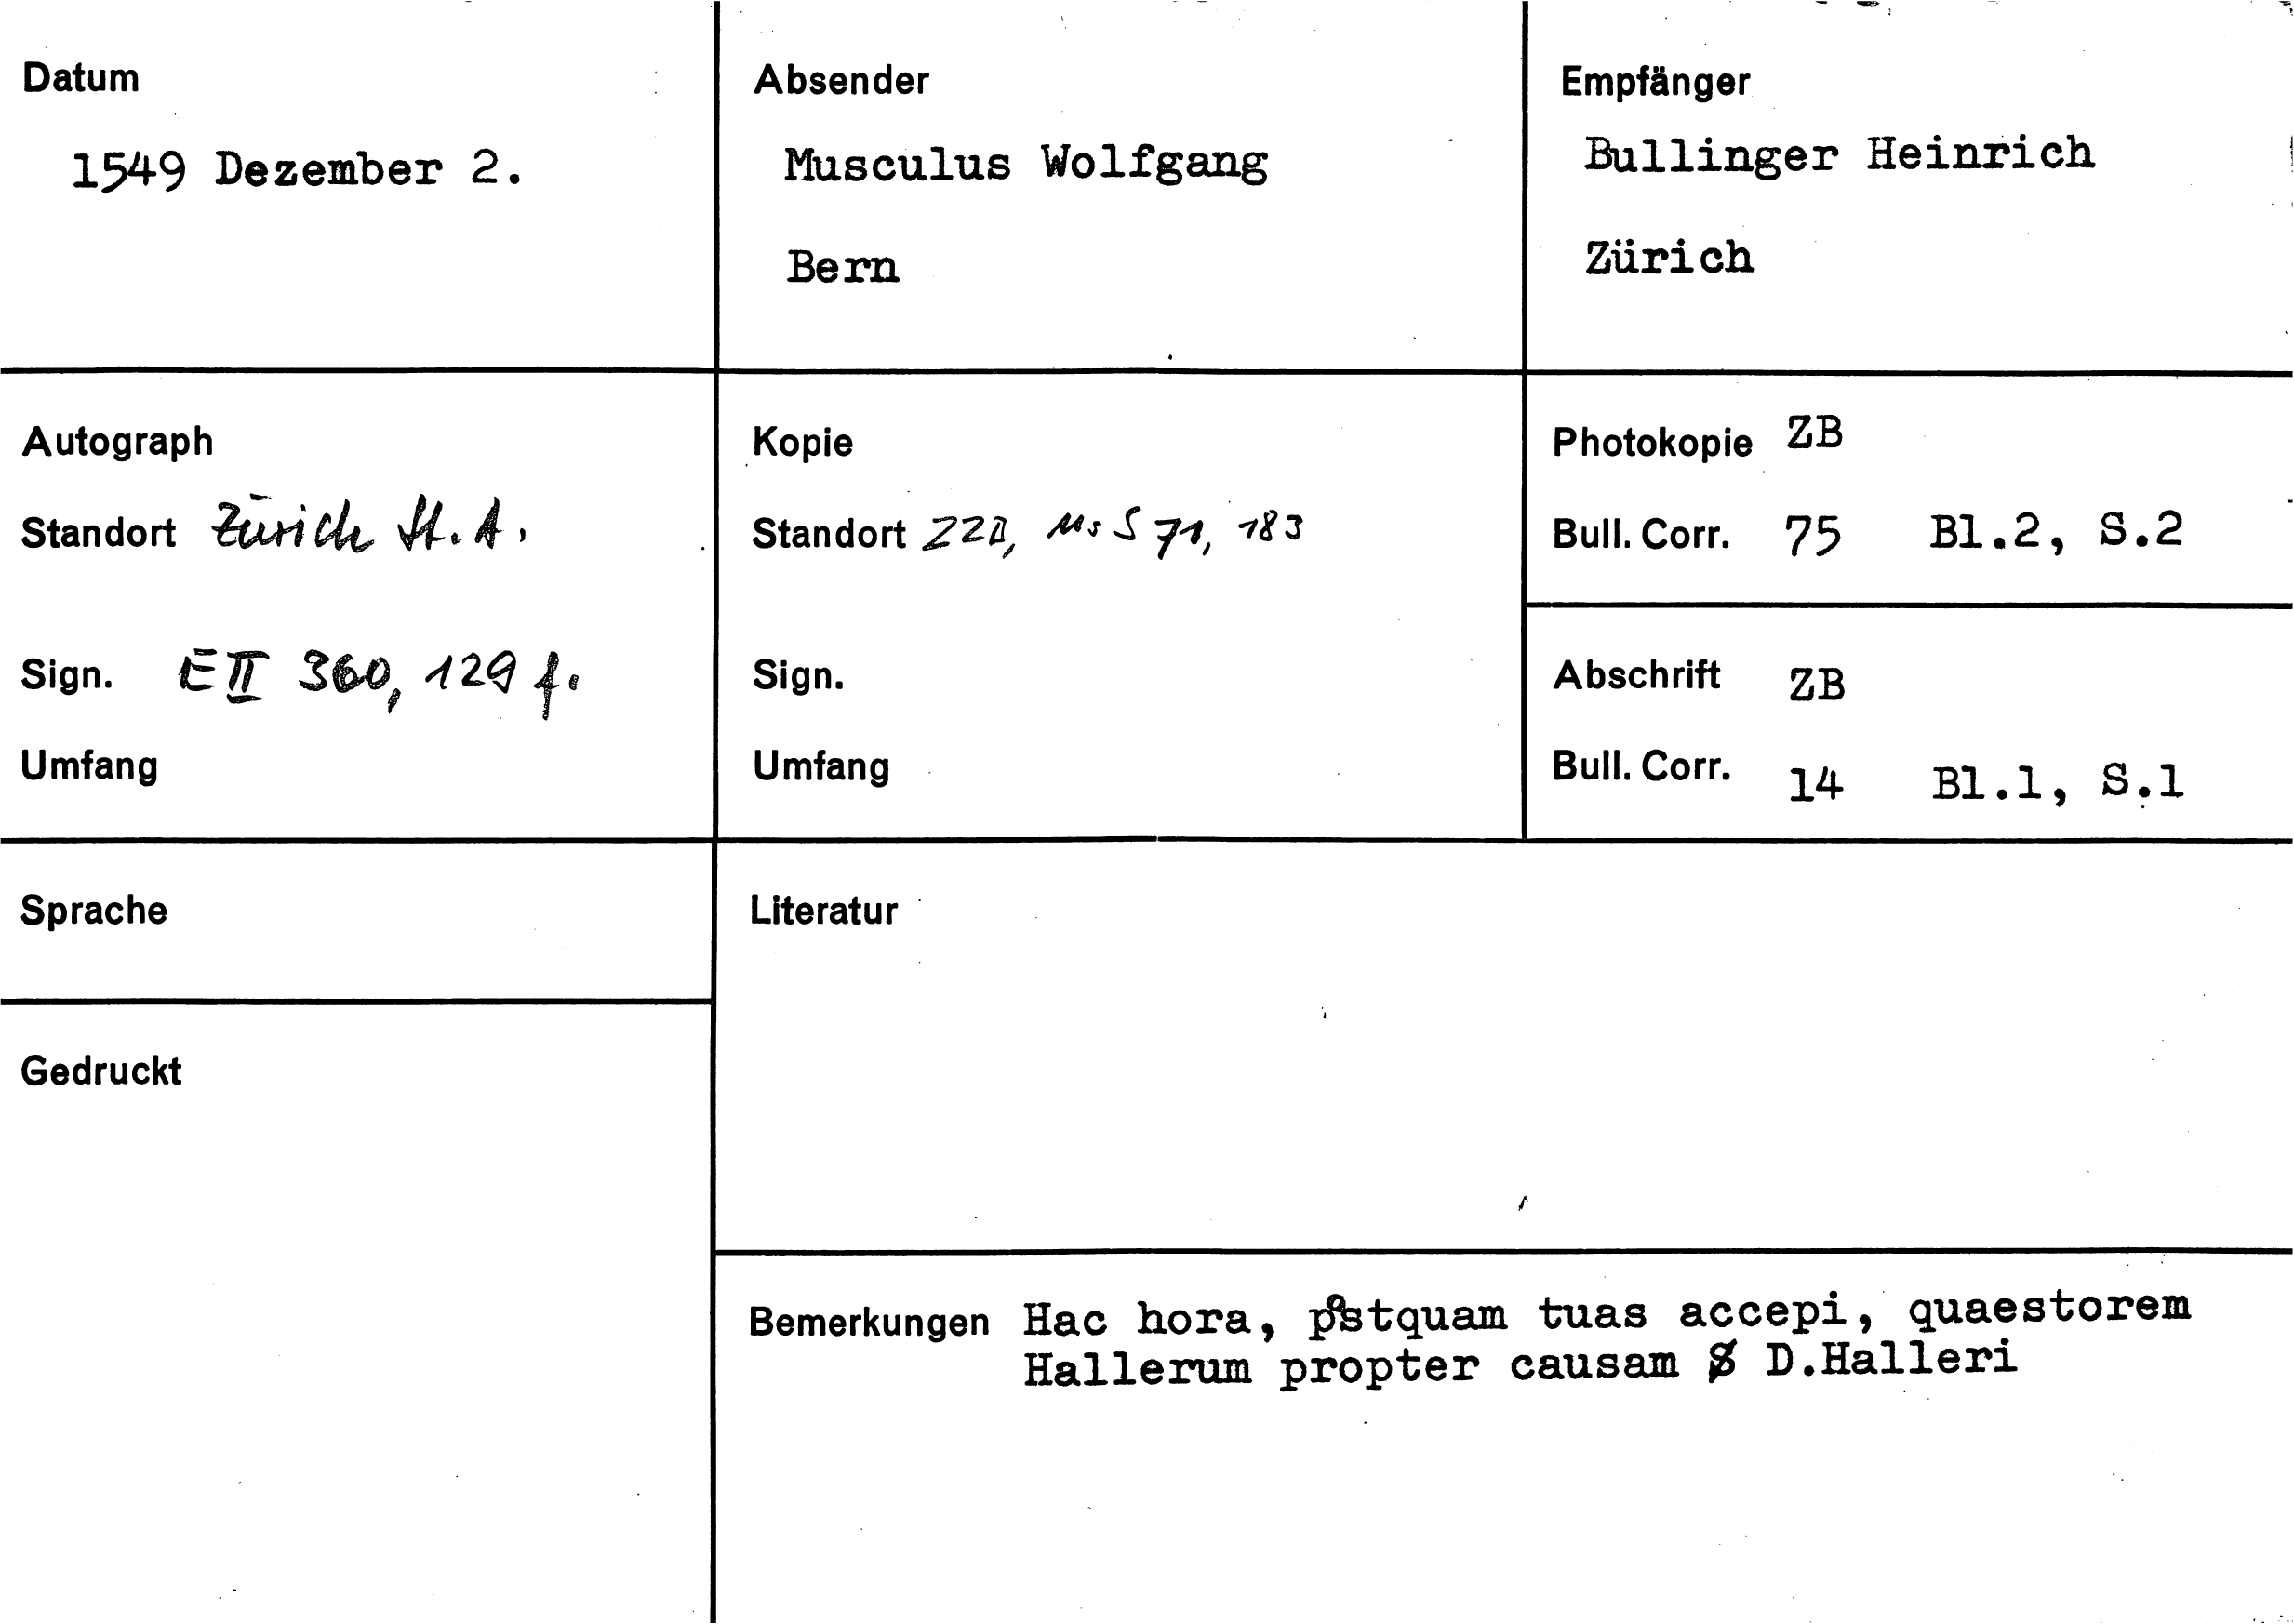 Datum
1549 Dezember 2.
Absender
Musculus Wolfgang
Bern
Empfänger
Bullinger Heinrich
Zürich
Autograph
Standort Zürich St. A.
Sign. E II 360, 129 f.
Umfang
Kopie
Standort ZZB, Ms S 71, 183
Sign.
Umfang
Photokopie ZB
Bull. Corr. 75 Bl.2, S.2
Abschrift ZB
Bull. Corr. 14 Bl.1, S.1
Sprache
Gedruckt
Literatur
Bemerkungen Hac hora, postquam tuas accepi, quaestorem
Hallerum propter causam D.Halleri